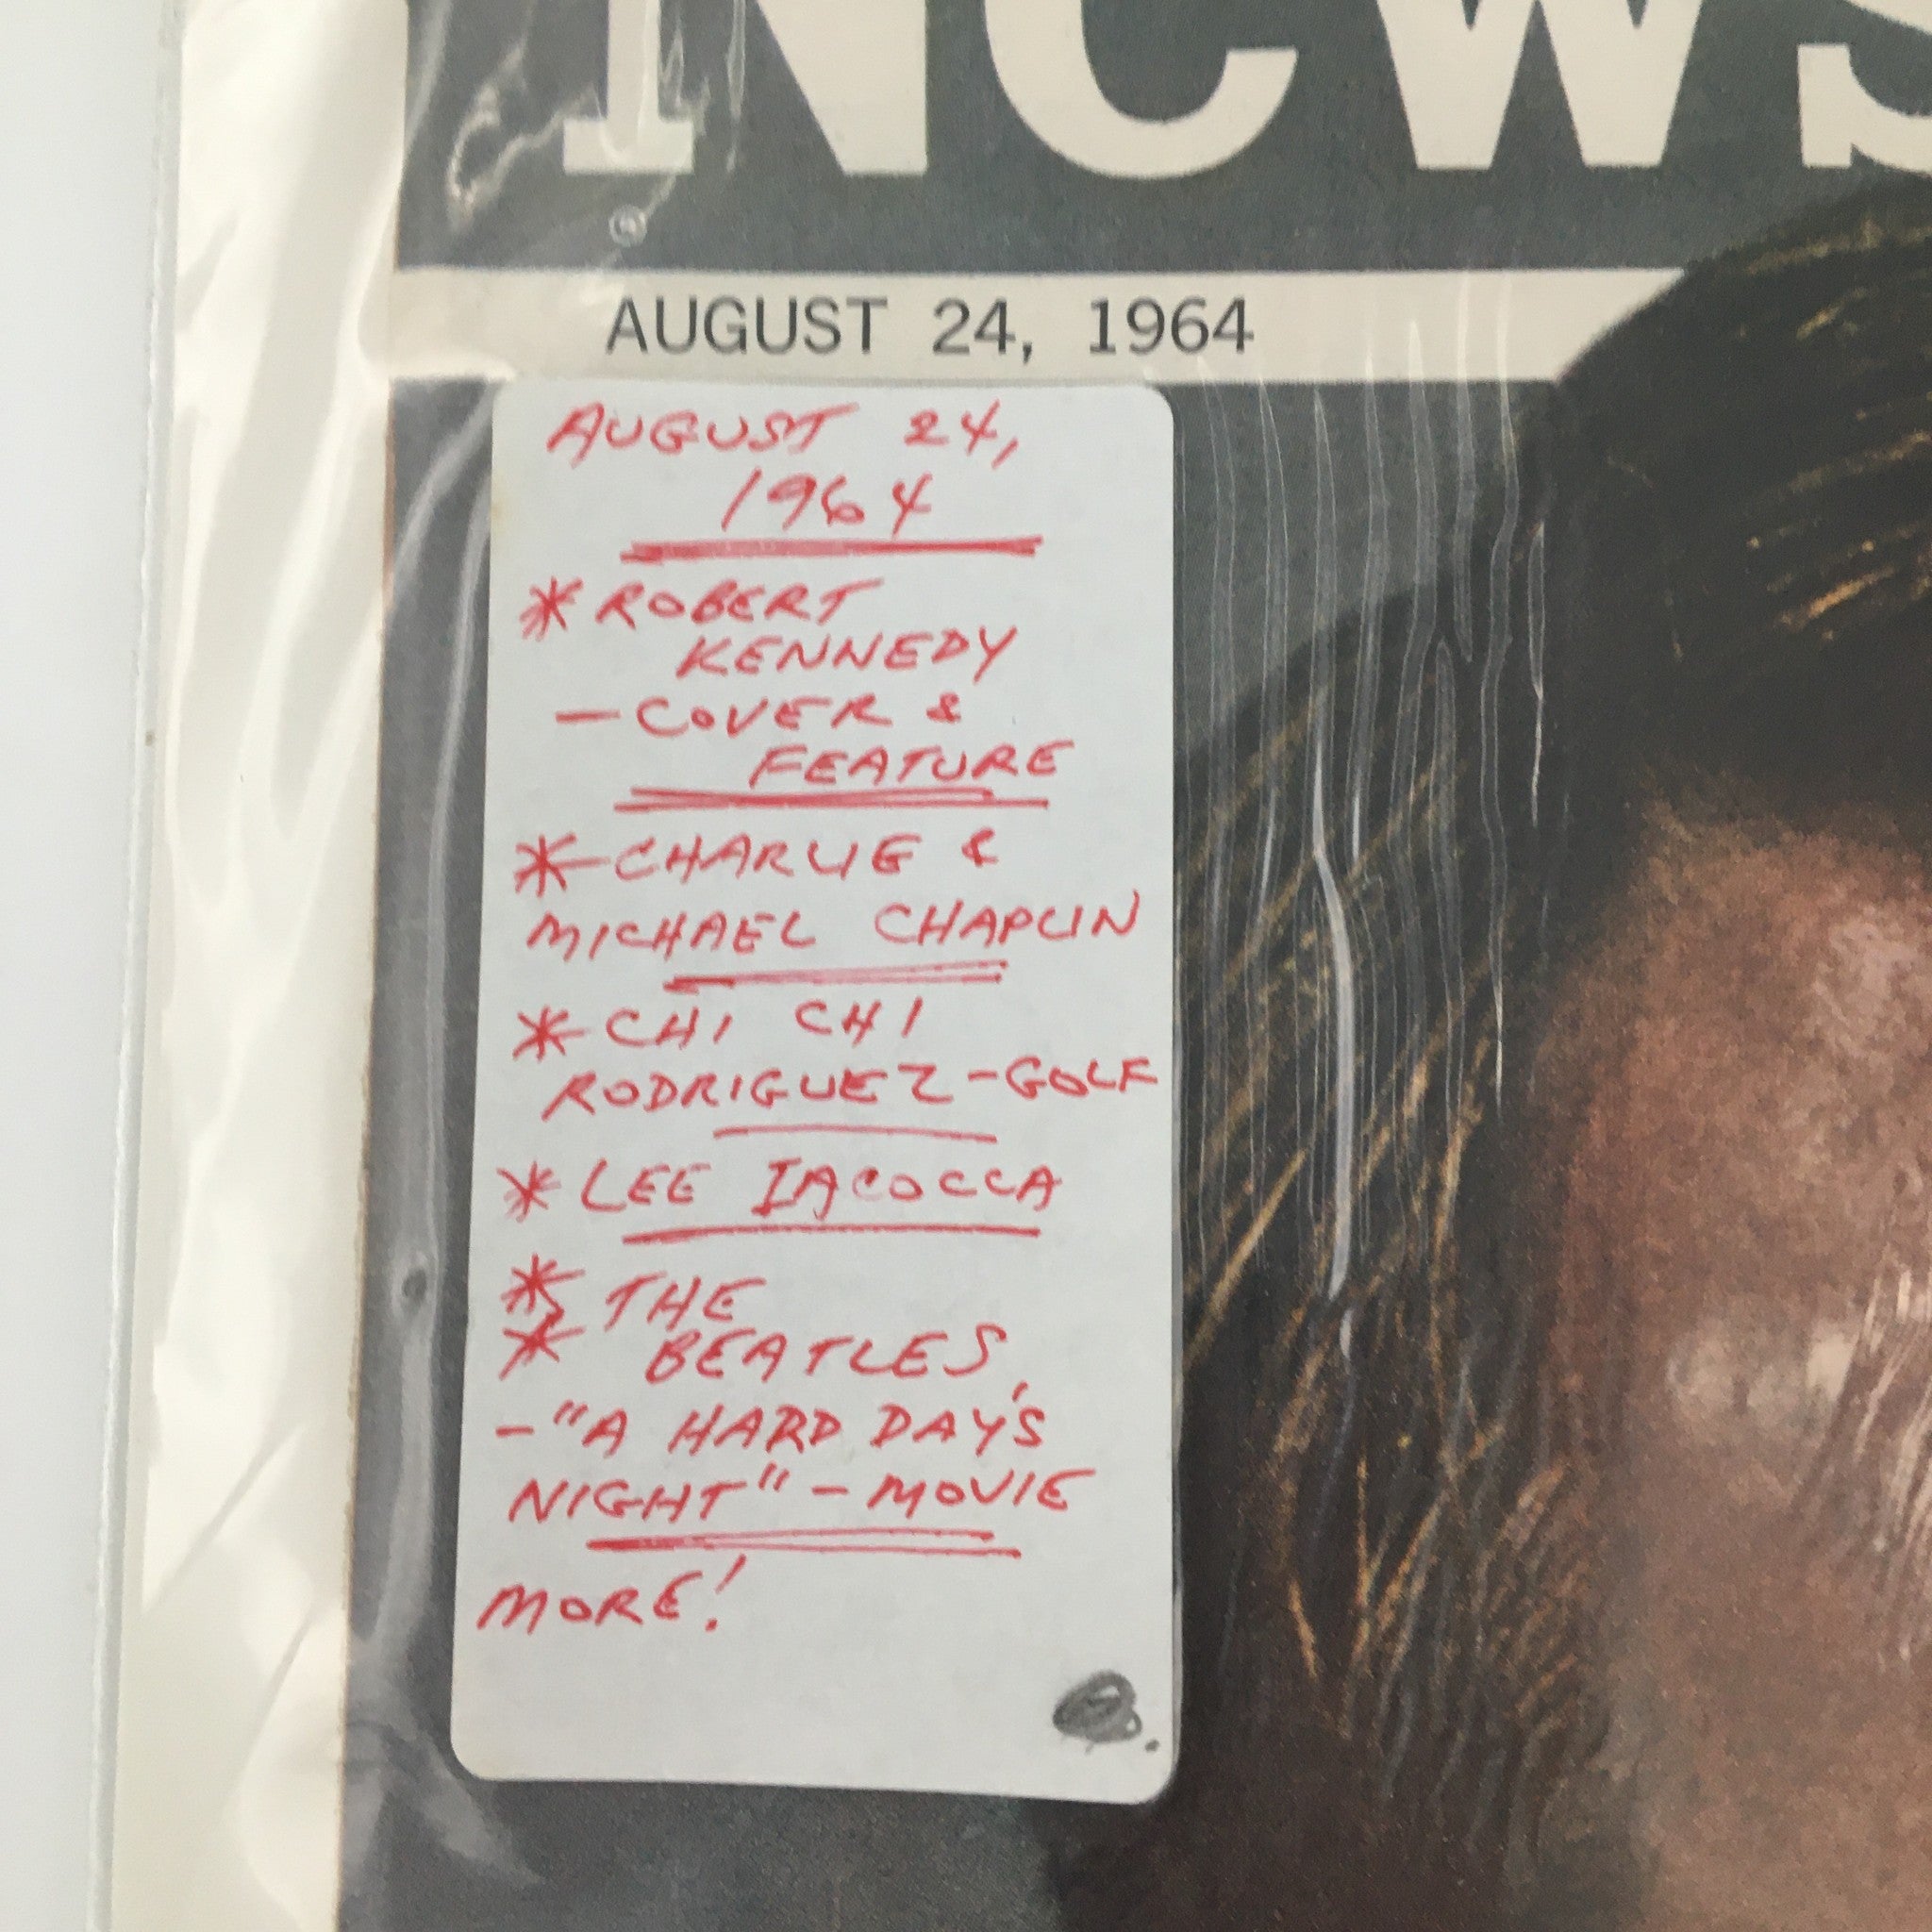 News
AUGUST 24, 1964
AUGUST 24,
1964
* ROBERT
KENNEDY
- COVER &
FEATURE
* CHARLIE &
MICHAEL CHAPLIN
* CHI CHI
RODRIGUEZ - GOLF
* LEE IACOCCA
* THE
* BEATLES,
- "A HARD DAY'S
NIGHT" - MOVIE
MORE!